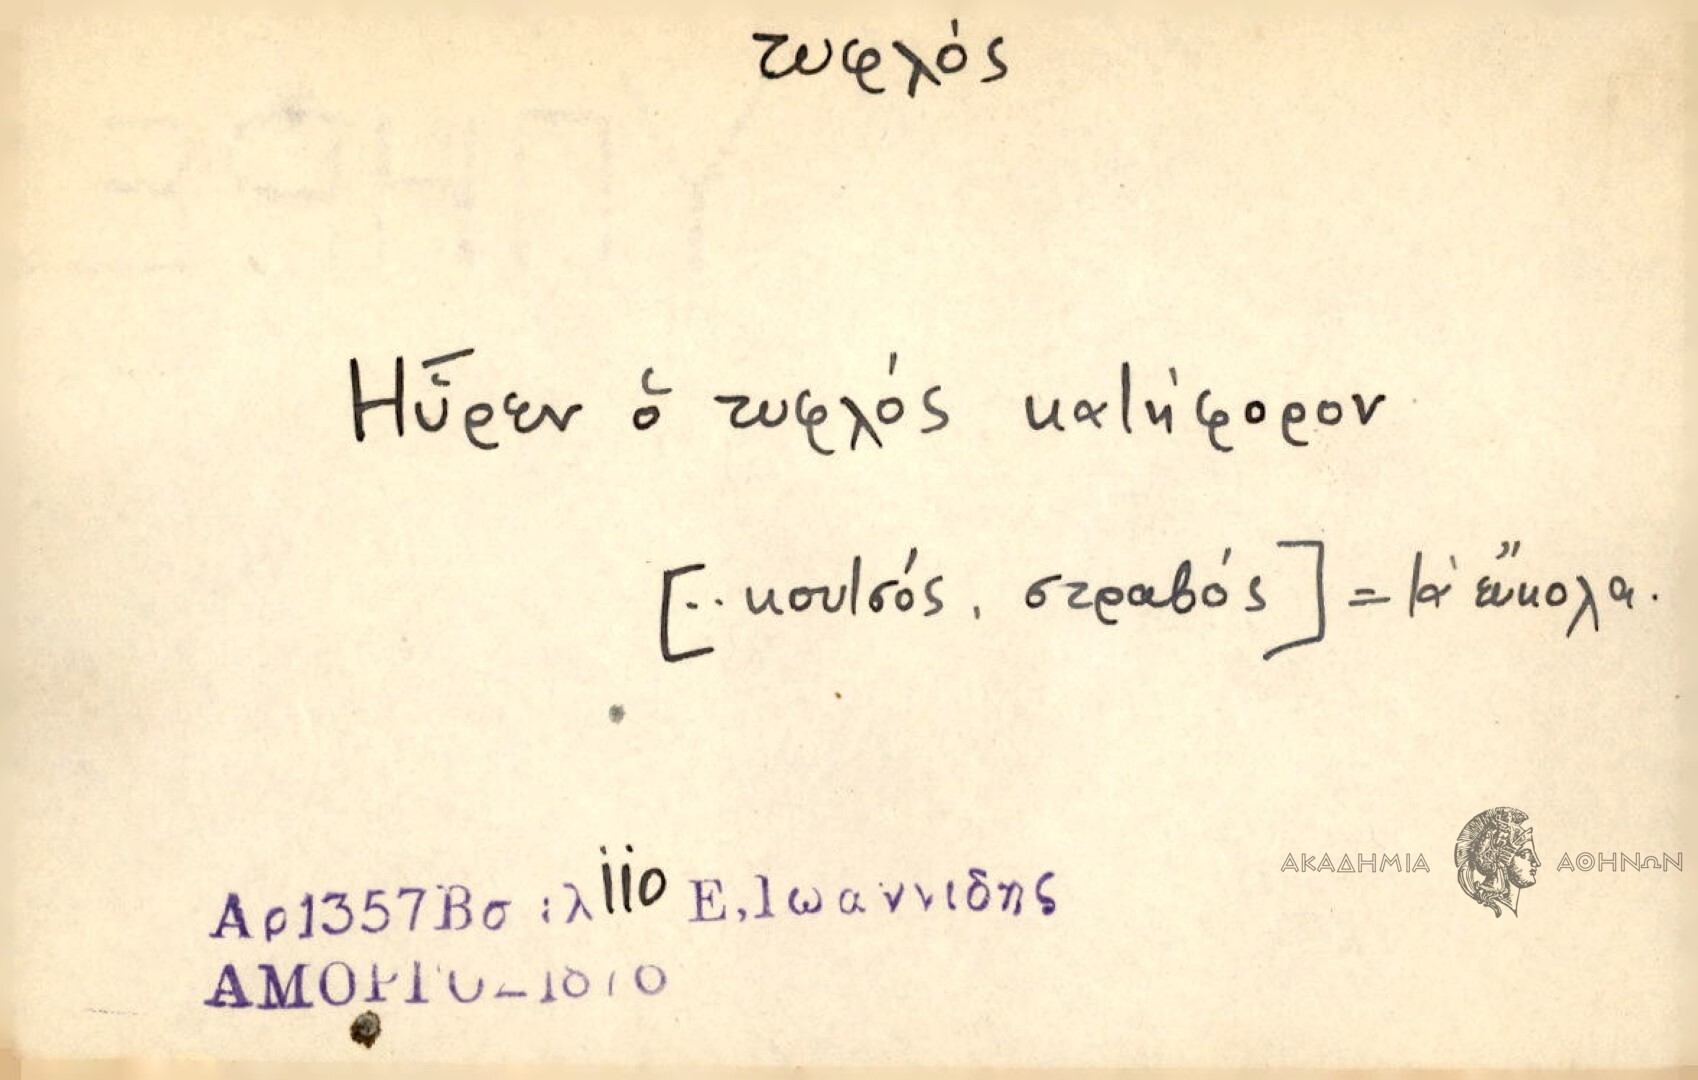 τυφλός
Ηὗρεν ὁ τυφλός κατήφορον
[.. κουτσός, στραβός] = τά εὔκολα.
Αρ1357Βσ ιλ 110 Ε,Ιωαννιδης
ΑΜΟΡΓΟΣ 1876
ΑΚΑΔΗΜΙΑ ΑΘΗΝΩΝ